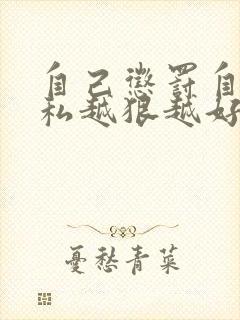 自己懲罰自
私越狠越好
憂愁青菜